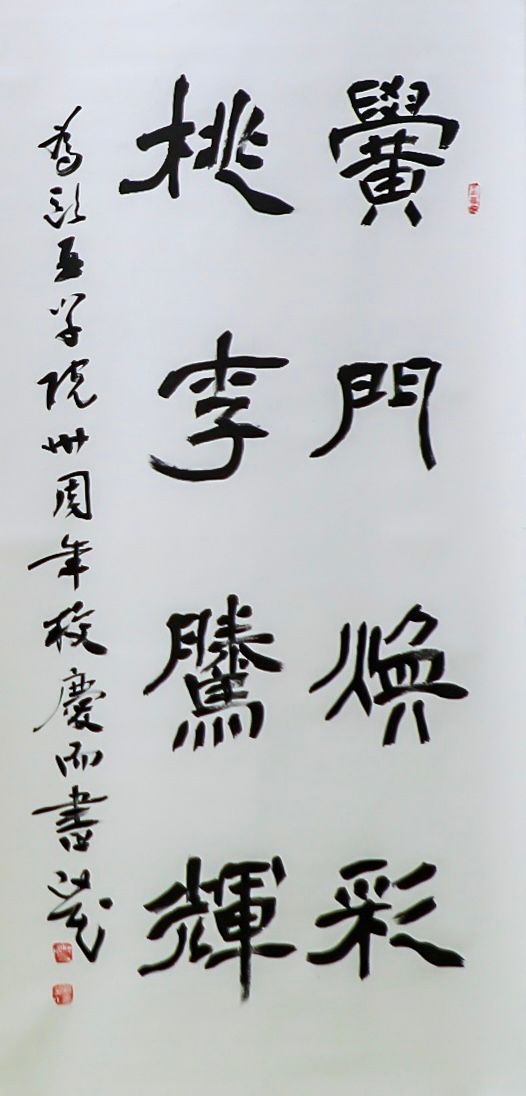 黌門煥彩
桃李騰輝
為歐亞学院卅周年校慶而書